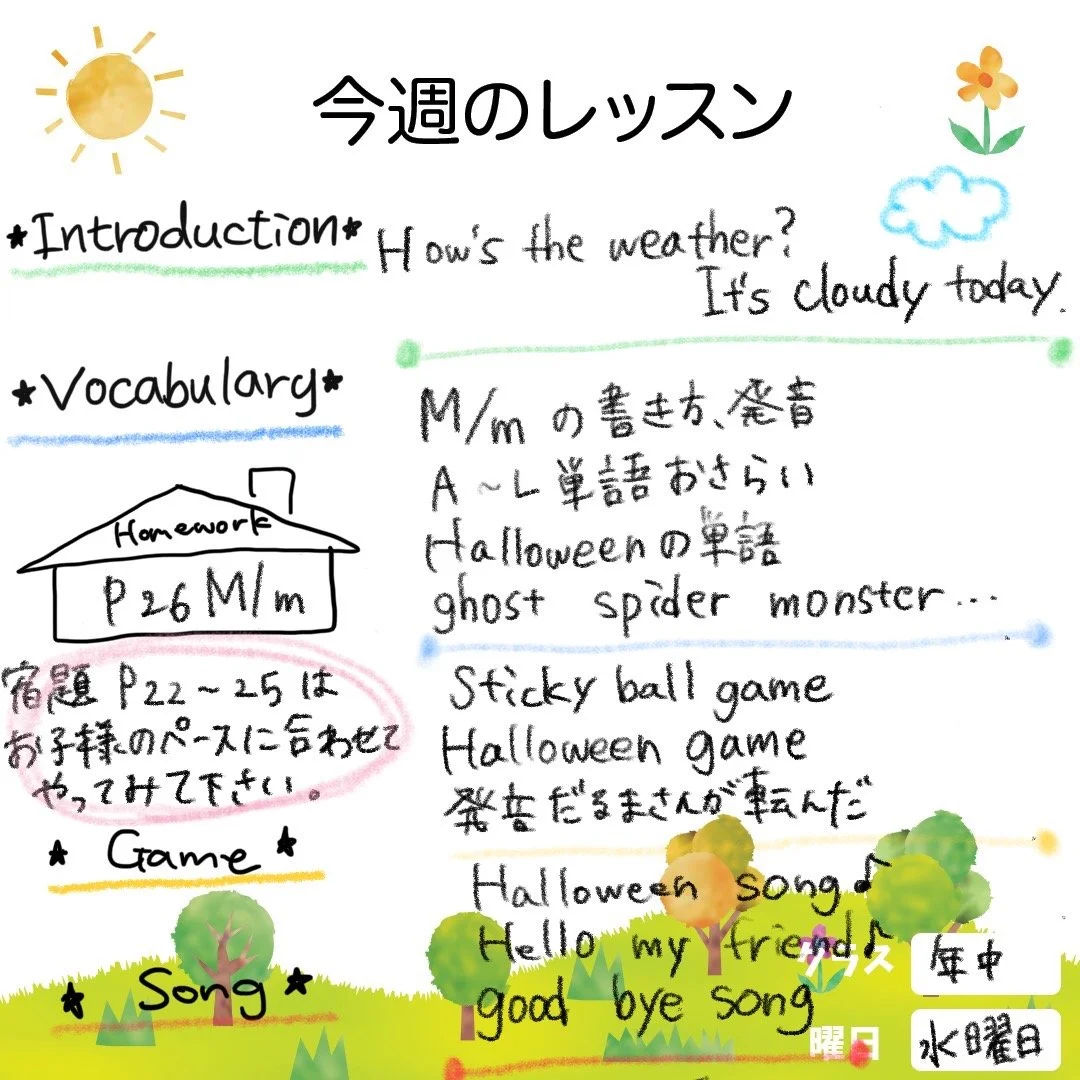 今週のレッスン
*Introduction*
How's the weather?
It's cloudy today.
*Vocabulary*
M/mの書き方、発音
A～L単語おさらい
Halloweenの単語
ghost spider monster...
Homework
P26 M/m
宿題 P22～25は
お子様のペースに合わせて
やってみて下さい。
*Game*
Sticky ball game
Halloween game
発音だるまさんが転んだ
*Song*
Halloween song♪
Hello my friend♪
good bye song
クラス 年中
曜日 水曜日